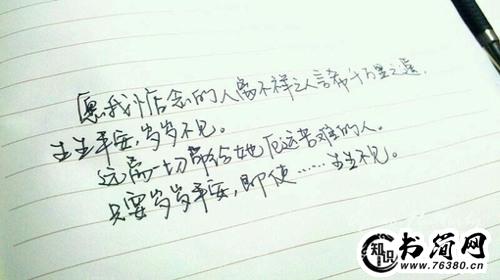 愿我惦念的人离不祥之人言希千万里之遥，
生生平安，岁岁不见。
远离一切带给她厄运苦难的人。
只要岁岁平安，即使……生生不见。
知识
书简网
www.76380.cn